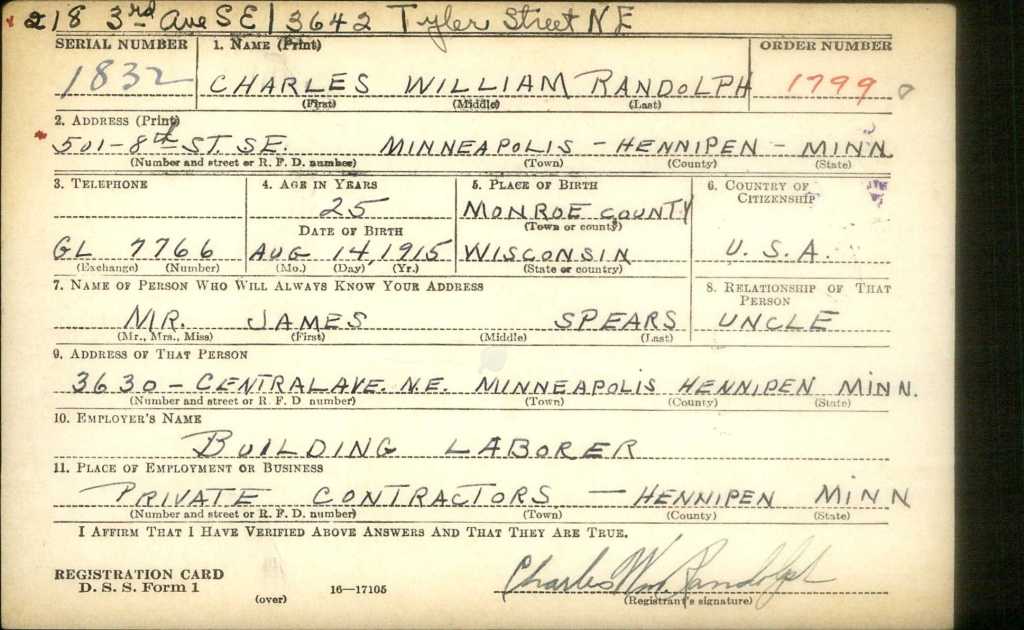 218 3rd Ave SE / 3642 Tyler Street NE
SERIAL NUMBER 1. NAME (Print) ORDER NUMBER
1832 CHARLES WILLIAM RANDOLPH 1799
(First) (Middle) (Last)
2. ADDRESS (Print)
501-8th ST. SE. MINNEAPOLIS - HENNIPEN - MINN
(Number and street or R. F. D. number) (Town) (County) (State)
3. TELEPHONE 4. AGE IN YEARS 5. PLACE OF BIRTH 6. COUNTRY OF CITIZENSHIP
25 MONROE COUNTY
DATE OF BIRTH (Town or county)
GL 7766 AUG 14, 1915 WISCONSIN U.S.A.
(Exchange) (Number) (Mo.) (Day) (Yr.) (State or country)
7. NAME OF PERSON WHO WILL ALWAYS KNOW YOUR ADDRESS 8. RELATIONSHIP OF THAT PERSON
MR. JAMES SPEARS UNCLE
(Mr., Mrs., Miss) (First) (Middle) (Last)
9. ADDRESS OF THAT PERSON
3630 - CENTRAL AVE. N.E. MINNEAPOLIS HENNIPEN MINN.
(Number and street or R. F. D. number) (Town) (County) (State)
10. EMPLOYER'S NAME
BUILDING LABORER
11. PLACE OF EMPLOYMENT OR BUSINESS
PRIVATE CONTRACTORS - HENNIPEN MINN
(Number and street or R. F. D. number) (Town) (County) (State)
I AFFIRM THAT I HAVE VERIFIED ABOVE ANSWERS AND THAT THEY ARE TRUE.
Charles Wm. Randolph
REGISTRATION CARD
D. S. S. Form 1 (over) 16—17105 (Registrant's signature)